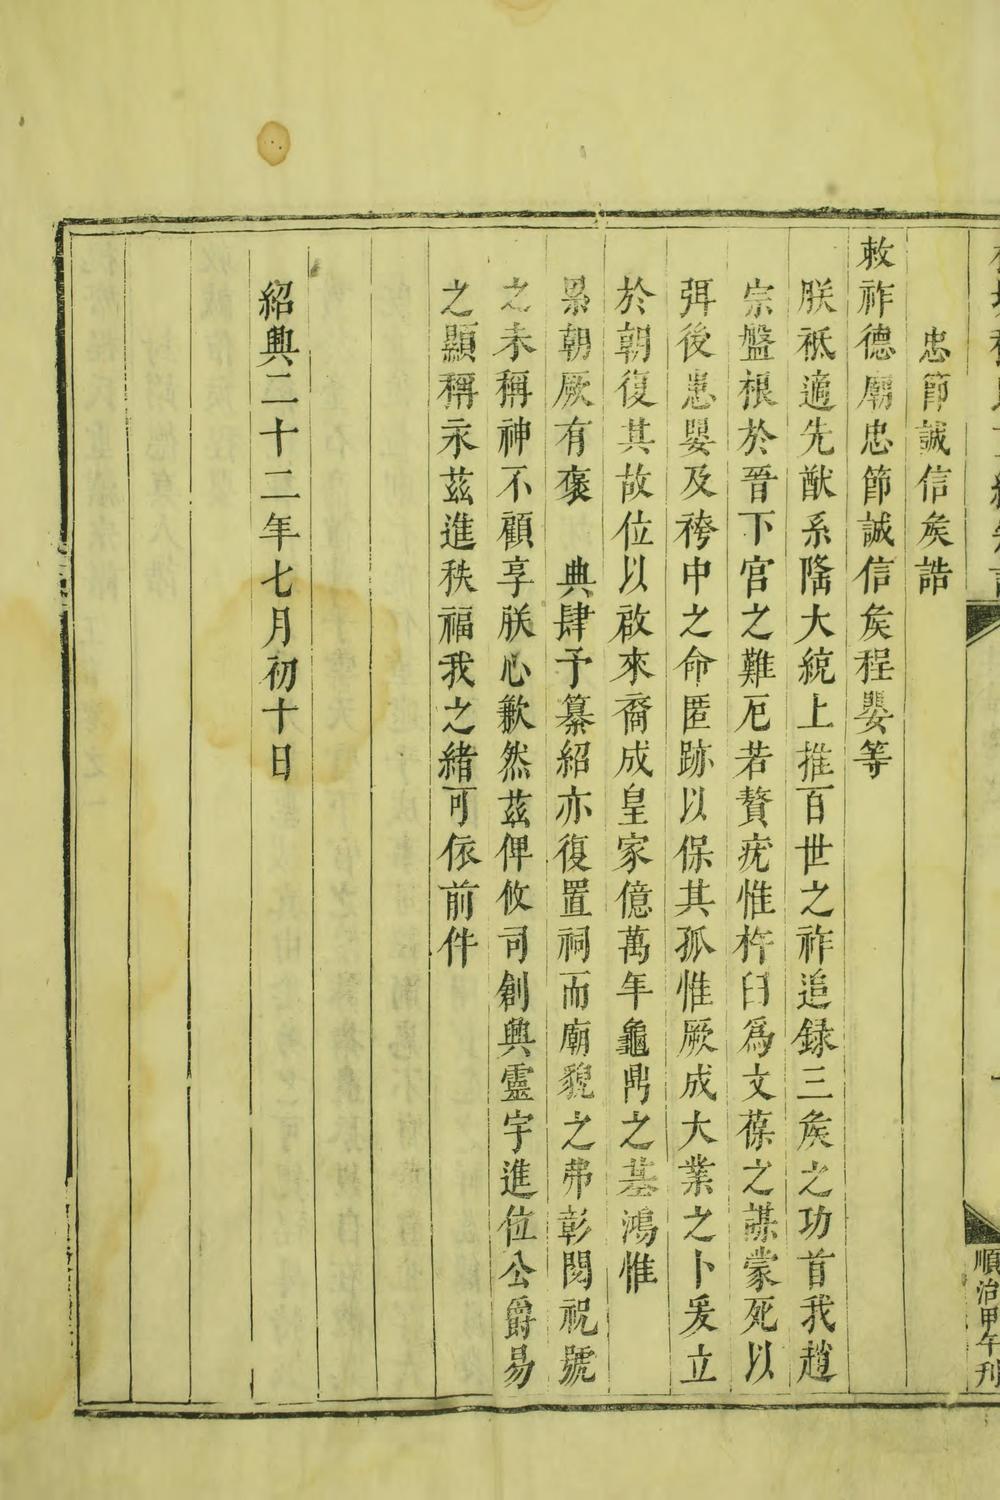 忠節誠信矦誥
敕祚德廟忠節誠信矦程嬰等
朕祗適先猷系隆大統上推百世之祚追録三矦之功首我趙
宗盤根於晉下官之難厄若贅疣惟杵臼爲文葆之謀蒙死以
弭後患嬰及袴中之命匿跡以保其孤惟厥成大業之卜爰立
於朝復其故位以啟來裔成皇家億萬年龜鼎之基鴻惟
景朝厥有褒 典肆予纂紹亦復置祠而廟貌之弗彰閱祝號
之未稱神不顧享朕心歉然茲俾攸司創興靈宇進位公爵易
之顯稱永茲進秩福我之緒可依前件
紹興二十二年七月初十日
順治甲午刊